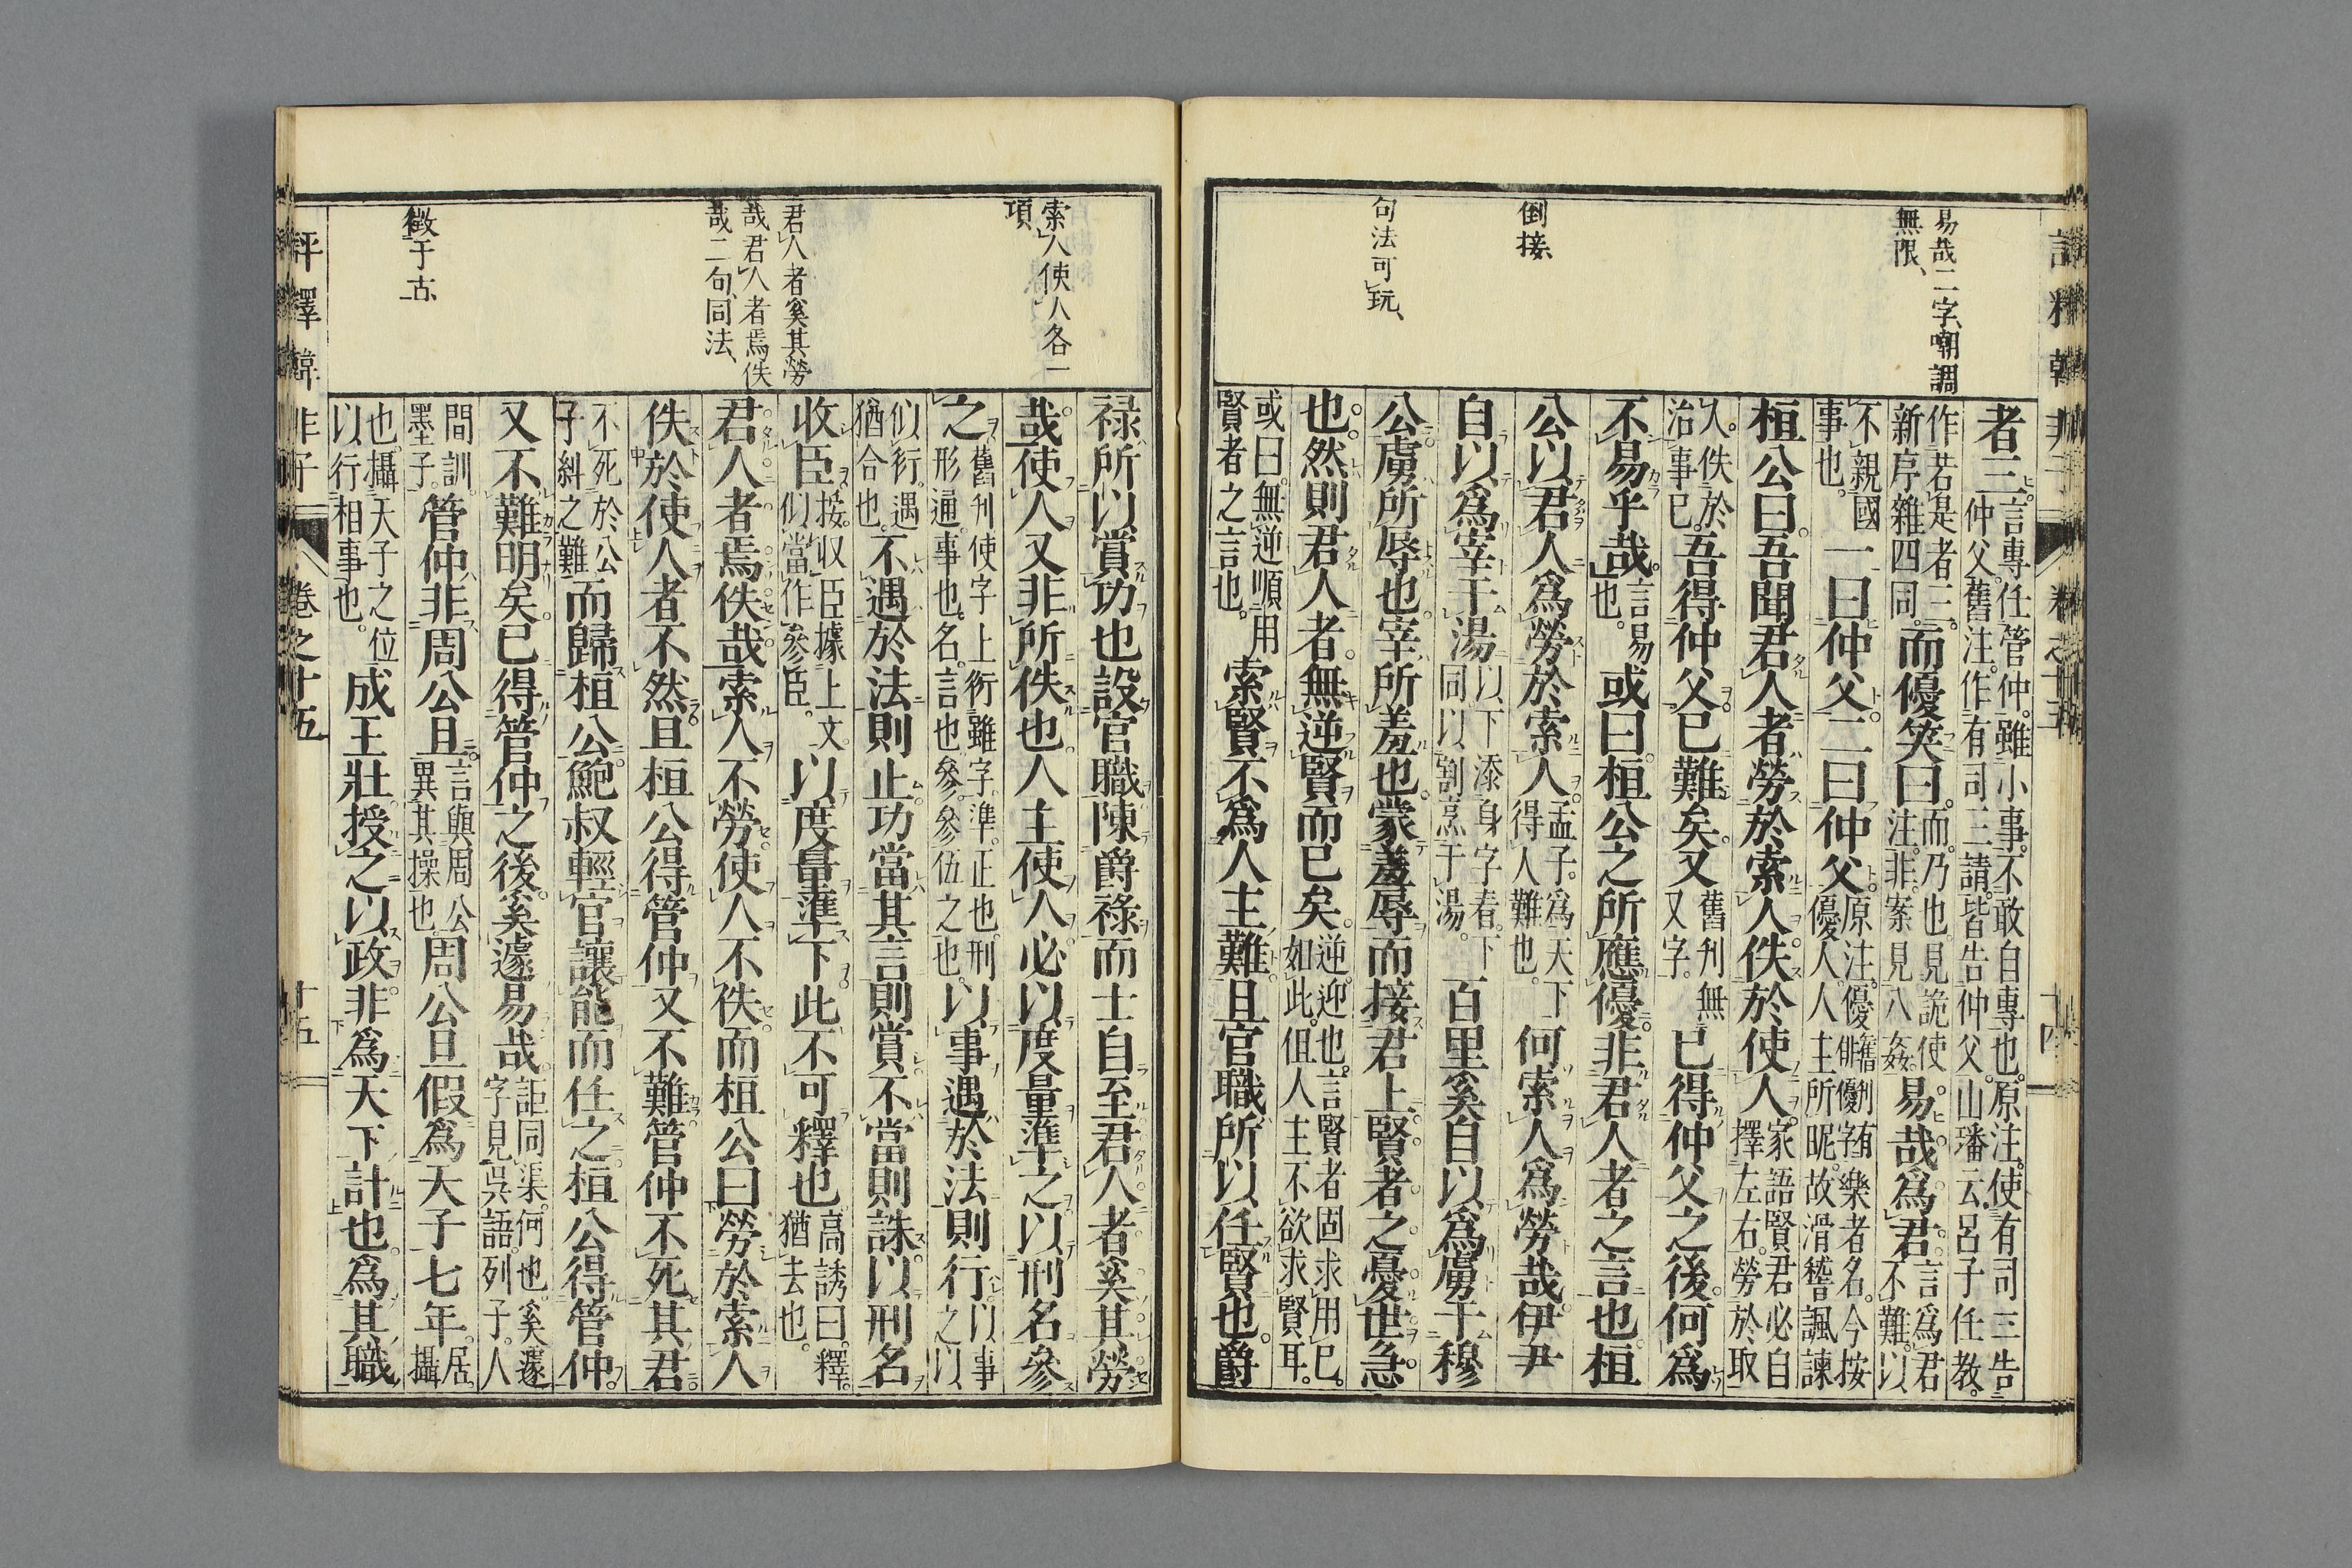 易哉二字、嘲調
無限、
倒接、
句法可玩、
者三。言專任管仲。雖小事。不敢自專也。原注。使有司三告
仲父。舊注。作有司三請。皆告仲父。山璠云呂子任教。
作若是者三。
新序雜四同。而優笑曰。而。乃也。見詭使
注非。案見八姦。易哉爲君。言爲君
不難。以
不親國
事也。一曰仲父。二曰仲父。原注。優舊刊有俳優字樂者名。今按
優人。人主所昵。故滑稽諷諫
桓公曰。吾聞君人者勞於索人。佚於使人。家語賢君必自
擇左右。勞於取
人。佚於
治事已。吾得仲父已難矣。又舊刊無
又字。已得仲父之後。何爲
不易乎哉。言易
也。或曰。桓公之所應優。非君人者之言也。桓
公以君人爲勞於索人。孟子。爲天下
得人難也。何索人爲勞哉。伊尹
自以爲宰干湯。以下添身字看。下
同。以割烹干湯。百里奚自以爲虜干穆
公。虜所辱也。宰所羞也。蒙羞辱而接君上。賢者之憂世急
也。然則君人者。無逆賢而已矣。逆。迎也。言賢者固求用已。
如此。但人主不欲求賢耳。
或曰。無逆順用
賢者之言也。索賢不爲人主難。且官職所以任賢也。爵
評釋韓非子 卷之十五 十四
索人使人各一
項、
君人者奚其勞
哉、君人者焉佚
哉二句、同法、
徵于古、
祿所以賞功也。設官職陳爵祿。而士自至。君人者奚其勞
哉。使人又非所佚也。人主使人。必以度量準之。以刑名參
之。舊刊使字上衍雖字。準。正也。刑
形通。事也。名。言也。參。參伍之也。以事遇於法則行。以事
之以
似衍。遇
猶合也。不遇於法則止。功當其言則賞。不當則誅。以刑名
收臣。接。收臣據上文。
似當作參臣。以度量準下。此不可釋也。高誘曰。釋。
猶去也。
君人者焉佚哉。索人不勞。使人不佚。而桓公曰。勞於索人。
佚於使人者。不然。且桓公得管仲。又不難。管仲不死其君。
不死於公
子糾之難而歸桓公。鮑叔輕官讓能而任之。桓公得管仲。
又不難明矣。已得管仲之後。奚遽易哉。詎同渠。何也。奚遽
字見呉語。列子。人
間訓。
墨子。管仲非周公旦。言與周公
異其操也。周公旦假爲天子七年。居。
攝
也。攝天子之位
以行相事也。成王壯。授之以政。非爲天下計也。爲其職
評釋韓非子 卷之十五 十五